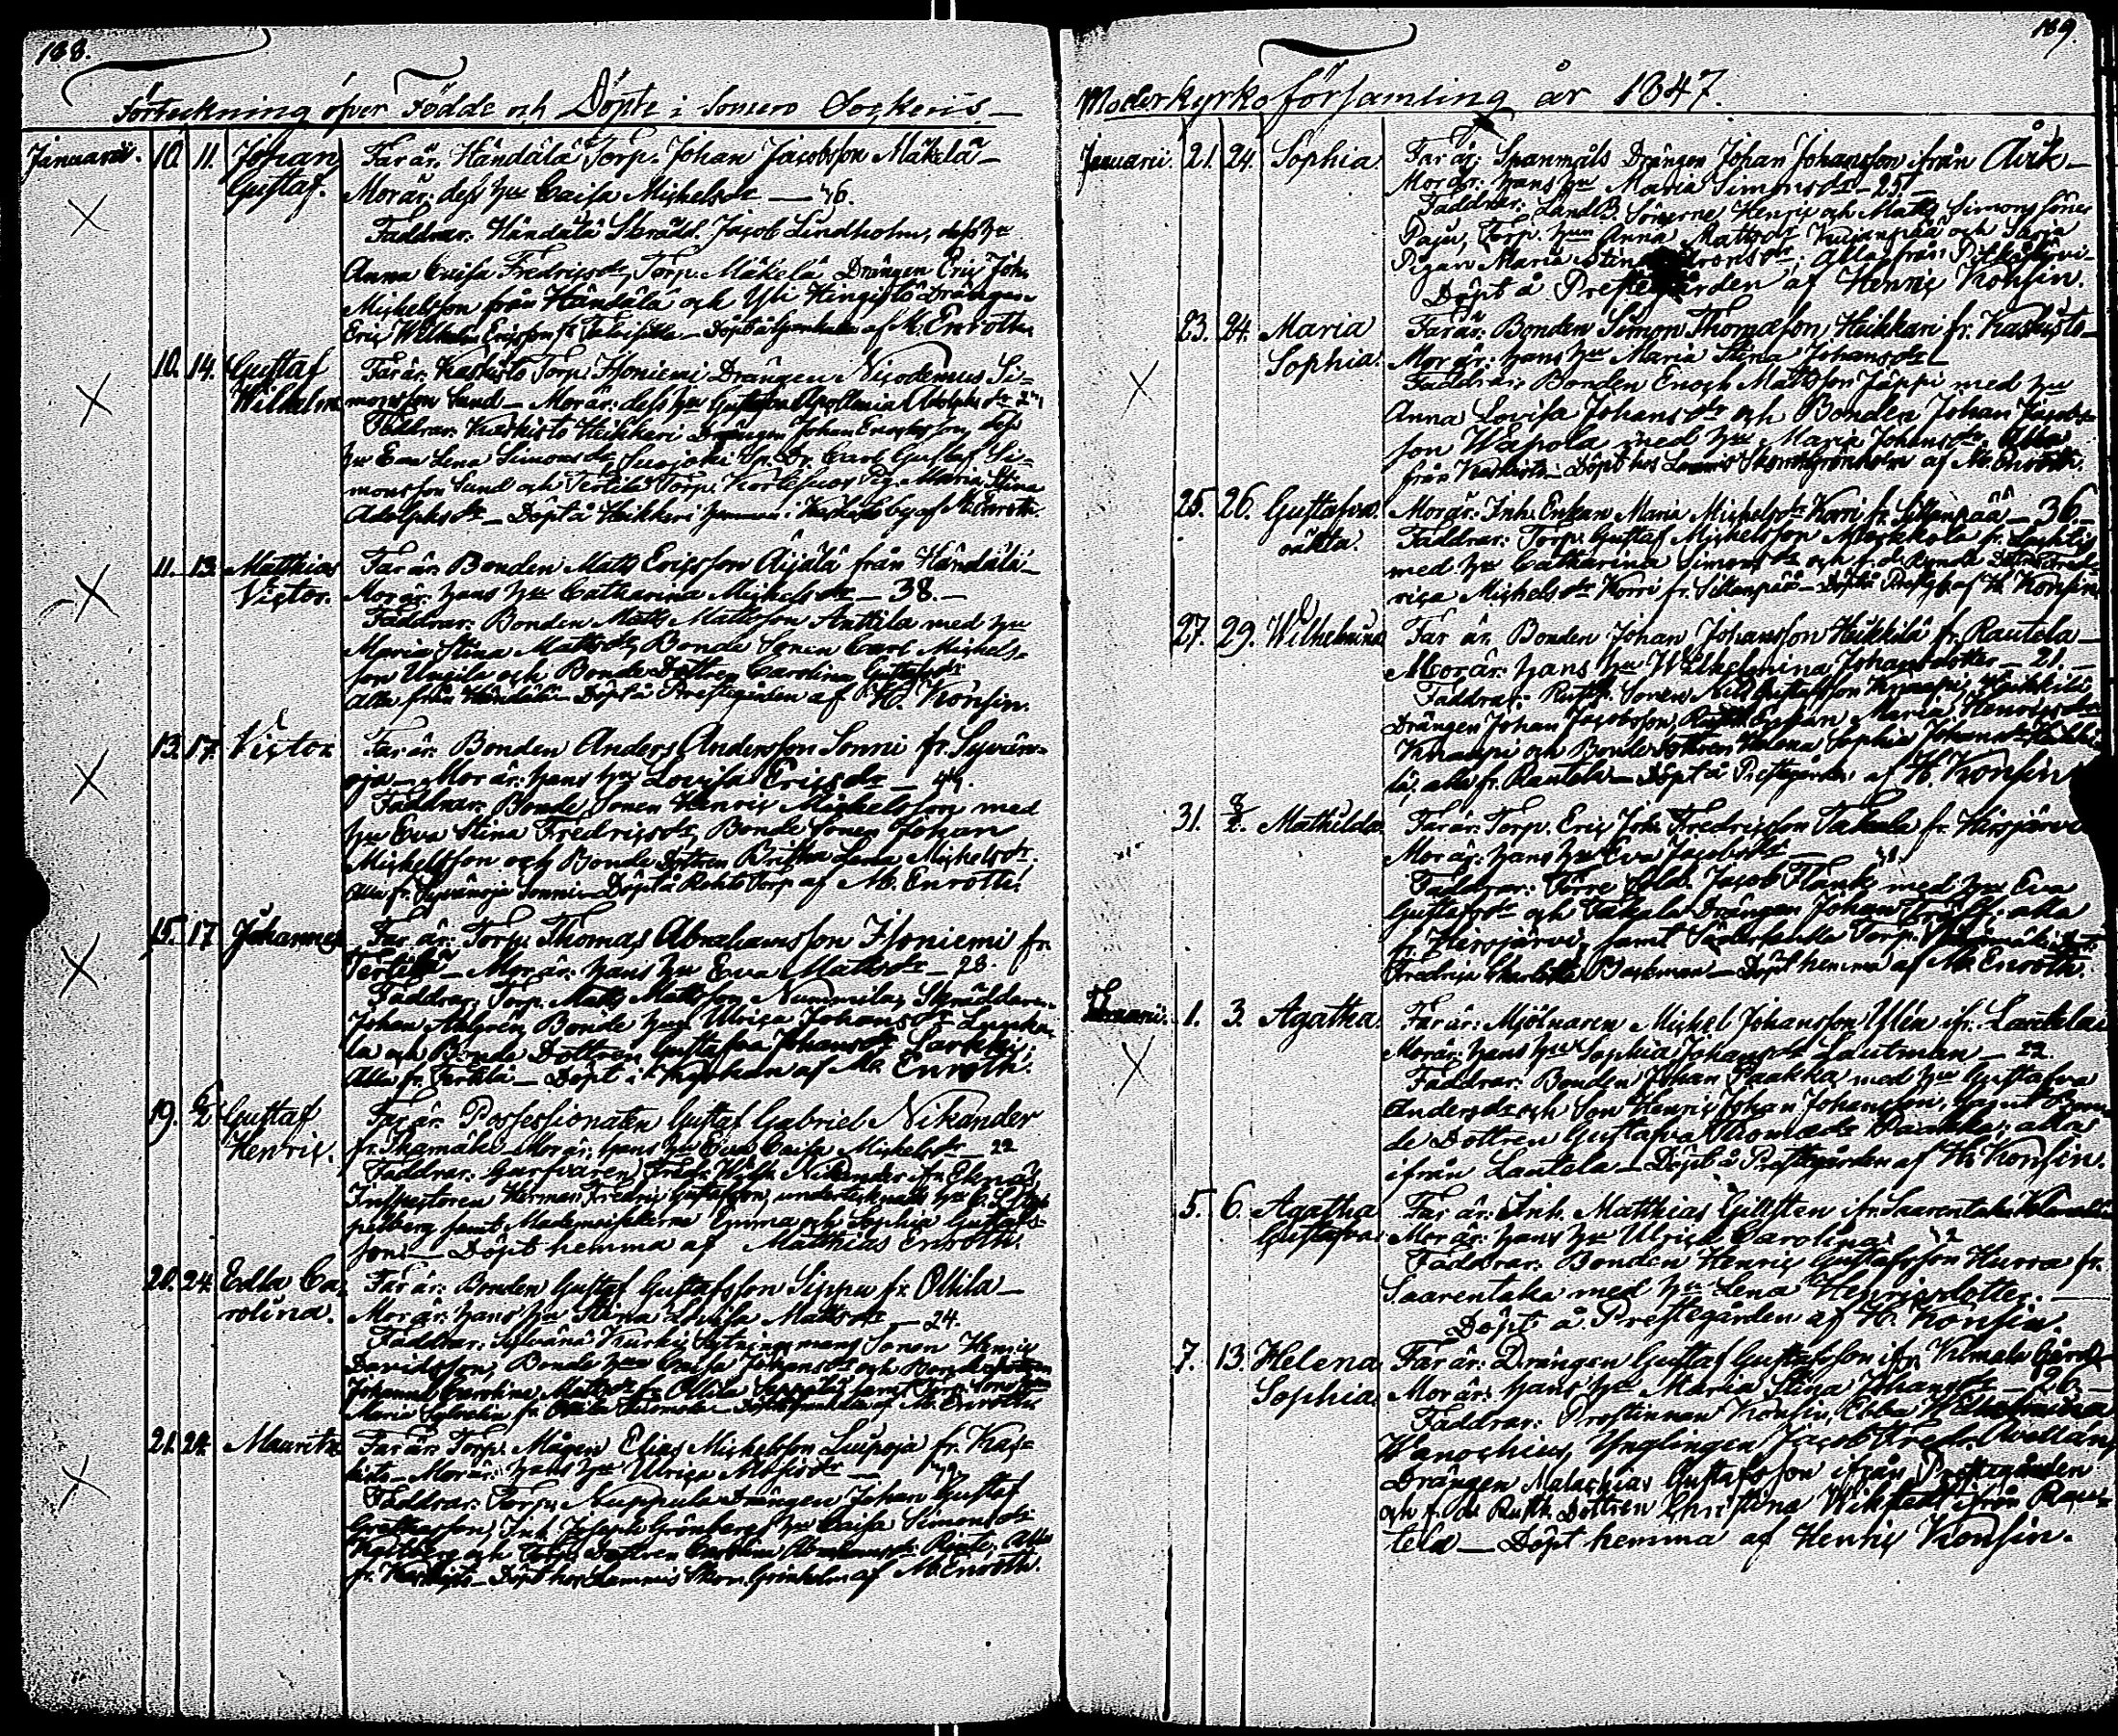 188.
Förteckning öfver Födde och Döpte i Somero Sockens
Januarii. 10. 11. Johan Far är: Händälä Torp. Johan Jacobsson Mäkelä
Gustaf. Mor är: dess hu Caisa Michelsdr
Faddrar: Händälä Skrädd. Jacob Lindholm, dess hu
Anna Caisa Fredricsdr, Torp. Mäkelä Drängen Eric Joh.
Michelsson från Händälä och Yli Hingistö Drängen
Eric Wilhelm Ericsson Döpt af M. Enroth.
10. 14. Gustaf Far är: Kaskisto Torp. Isoniemi Drängen Nicodemus Si-
Wilhelm monsson Lund - Mor är: dess hu Adolphsdr
Faddrar: Kaskisto Heikkari Drängen Johan dess
hu Eva Lena Simonsdr, Suojoki Carl Gustaf Si-
monsson Lund och Tertilä Torp. Pig. Maria Stina
Adolphsdr - Döpt å Heikkari af M. Enroth.
11. 13. Matthias Far är: Bonden Matts Ericsson Äijälä från Händälä
Victor. Mor är: hans hu Catharina Michelsdr - 38. -
Faddrar: Bonden Matts Mattsson Anttila med hu
Maria Stina Mattsdr, Bonde Sonen Carl Michels-
son Uusila och Bonde Dottren Carolina Gustafsdr
alla från Händälä - Döpt å Prestegården af H. Konsin.
13. 17. Victor Far är: Bonden Anders Andersson Sonni fr. Sylvän-
oja - Mor är: hans hu Lovisa Ericsdr - 44.
Faddrar: Bonde Sonen Henric Michelsson med
hu Eva Stina Fredricsdr, Bonde Sonen Johan
Michelsson och Bonde Dottren Britha Lena Michelsdr.
alla fr. Sylvänoja Sonni - Döpt å Torp af M. Enroth.
15. 17. Johannes Far är: Torp. Thomas Abrahamsson Isoniemi fr.
Tertilä - Mor är: hans hu Eva Mattsdr - 28.
Faddrar: Torp. Matts Mattsson Nummila, Skräddaren
Johan Ahlgren, Bonde hun Ulrica Johansdr
la och Bonde Dottren Gustafva Johansdr
Alla fr. Tertilä - Döpt i Kyrkan af M. Enroth.
19. 6/2 Gustaf Far är: Possessionaten Gustaf Gabriel Nikander
Henric. fr. Ihamäki - Mor är: hans hu Eva Caisa Michelsdr - 22
Faddrar: Garfvaren Fredr. Wilh. Nikander ifr. Eknäs,
Inspectoren Herman Fredric Gustafsson, undertecknads hu
samt Mademoisellerne Emma och Sophia Gustafs-
son. - Döpt hemma af Matthias Enroth.
20. 24. Edla Ca- Far är: Bonden Gustaf Gustafsson Sippu fr. Ollila -
rolina. Mor är: hans hu Stina Lovisa Mattsdr - 24.
Faddrar: Sylvänä Kurki mans Sonen Henric
Davidsson, Bonde hun Caisa Johansdr och
Johanna Carolina Mattsdr fr. Ollila samt Torp. Sons hun
Maria fr. Ollila af M. Enroth.
21. 24. Mauritz Far är: Torp. Mågen Elias Michelsson Luupoja fr. Kas-
kisto - Mor är: hans hu Ulrica
Faddrar: Torp. Nuppula Drängen Johan Gustaf
Inh. Joseph Grönbergs hu Caisa Simonsdr
och Torp. Dottren Carolina alla
fr. Kaskisto - Döpt hos Lammis Grönholm af M. Enroth.
189.
Moderkyrkoförsamling år 1847.
Januarii. 21. 24. Sophia Far är: Spanmåls Drängen Johan Johansson ifrån Åvik -
Mor är: hans hu Maria Simonsdr - 25.
Faddrar: LandB. Sönerne Henric och Matts Simons söner
Paju, Torp. hun Anna Mattsdr och
Pigan Maria Stina alla från Pitkäjärvi
Döpt å Prestegården af Henric Konsin.
23. 24. Maria Far är: Bonden Simon Thomasson Heikkari fr. Kaskisto -
Sophia. Mor är: hans hu Maria Stina Johansdr
Faddrar: Bonden Enoch Mattsson Jäppi med hu
Anna Lovisa Johansdr och Bonden Johan Jacobs-
son Wapola med hu Maria Johansdr. Alla
från Kaskisto - Döpt hos Lammis Grönholm af M. Enroth.
25. 26. Gustafva Mor är: Inh. Enkan Maria Michelsdr Korri fr. Sillanpää - 36 -
oäkta. Faddrar: Torp. Gustaf Michelsson
med hu Catharina Simonsdr och
rica Michelsdr Korri fr. Sillanpää - Döpt å Presteg. af H. Konsin.
27. 29. Wilhelmina Far är: Bonden Johan Johansson Heikkilä fr. Rautela -
Mor är: hans hu Wilhelmina Johansdotter - 21. -
Faddrar: Rusth. Sonen Nils Gustafsson Knaapi, Heikkilä
Drängen Johan Jacobsson, Rusth. Enkan Maria Henricsdr
Knaapi och Bonde Dottren Helena Sophia Johansdr Heikki-
lä, alla fr. Rautela - Döpt å Prestegården af H. Konsin
31. Mathilda Far är: Torp. Eric Joh. Fredricsson Takala fr. Hirsjärvi
Mor är: hans hu Eva Jacobsdr
Faddrar: Förre Sold. Jacob Flank med hu Eva
Gustafsdr och Takala Drängen Johan alla
fr. Hirsjärvi, samt Torp.
Fredrica Charlotta Backman - Döpt hemma af M. Enroth.
Februarii. 1. 3. Agatha. Far är: Mjölnaren Michel Johansson Ylén ifr. Lautela
Mor är: hans hu Sophia Johansdr Lautman - 22.
Faddrar: Bonden Johan Paakka med hu Gustafva
Andersdr och Son Henric Johan Johansson, samt Bon-
de Dottren Gustafva Thomasdr Paakka; alla
ifrån Lautela - Döpt å Prestegården af H. Konsin.
5. 6. Agatha Far är: Inh. Matthias Gillsten ifr. Saarentaka
Gustafva. Mor är: hans hu Ulrica Carolina
Faddrar: Bonden Henric Gustafsson Hurra fr.
Saarentaka med hu Lena Henricsdotter. -
Döpt å Prestegården af H. Konsin.
7. 13. Helena Far är: Drängen Gustaf Gustafsson ifr. Kilmala Gård -
Sophia. Mor är: hans hu Maria Stina Johansdr - 26. -
Faddrar: Prostinnan Konsin, Ebba Wilhelmina
Wanochius, Ynglingen Jacob Fredr. Avellan,
Drängen Malachias Gustafsson ifrån Prestegården
och f. d. Rusth. Dottren Christina Wikstedt ifrån Rau-
tela - Döpt hemma af Henric Konsin.